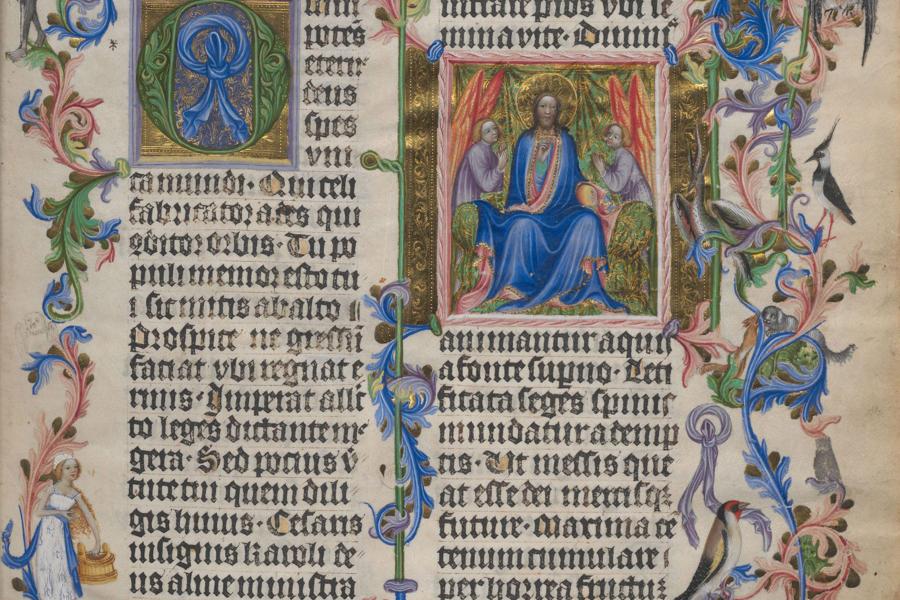 spes
vni
ca mundi. Qui celi
fabricator ades qui
conditor orbis. Tu po
puli memor esto tui
sic mitis ab alto
Prospice ne gressum
faciat vbi regnat e
rinis. Imperat alle
to leges dictante me
gera. Sed pocius v
tute tui quem dili
gis huius. Cesaris
insignis karoli de
us alme ministra
vite.
animantur aqui
a fonte superno. Leti
ficata seges spinis
mundatur ademp
tis. Ut messis que
at esse dei mercisque
future. Maxima ce
tenum cumulare
per horrea fructus